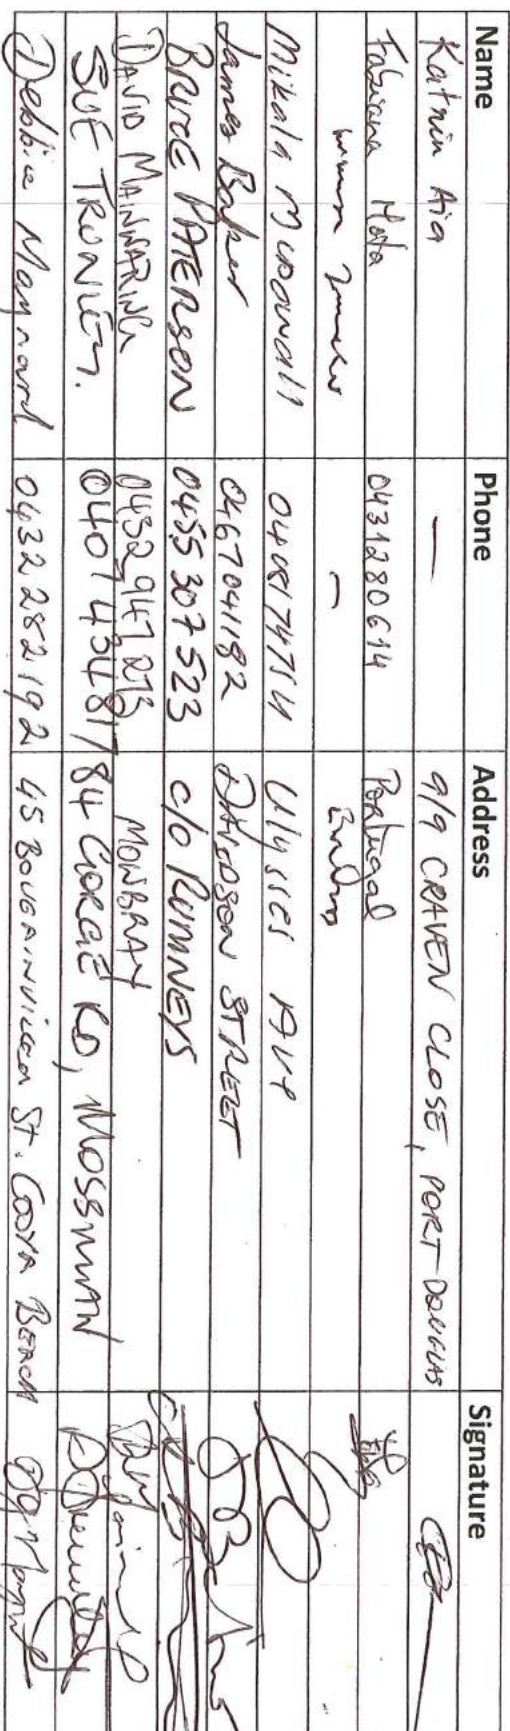 Name Phone Address Signature
Katrin Aia — 9/9 CRAVEN CLOSE, PORT DOUGLAS
Fabiana Mota 0431280614 Portugal
–
Mikala McDowall Ulysses Ave
James Baker 0467041182 DAVIDSON STREET
BRUCE PATERSON 0455 307 523 c/o RUMNEYS
DAVID MAINWARING 0432 947 273 MOWBRAY
SUE 0407 434817 84 GEORGE RD, MOSSMAN
Debbie Maynard 0432 282 192 45 BOUGAINVILLEA ST. COOYA BEACH